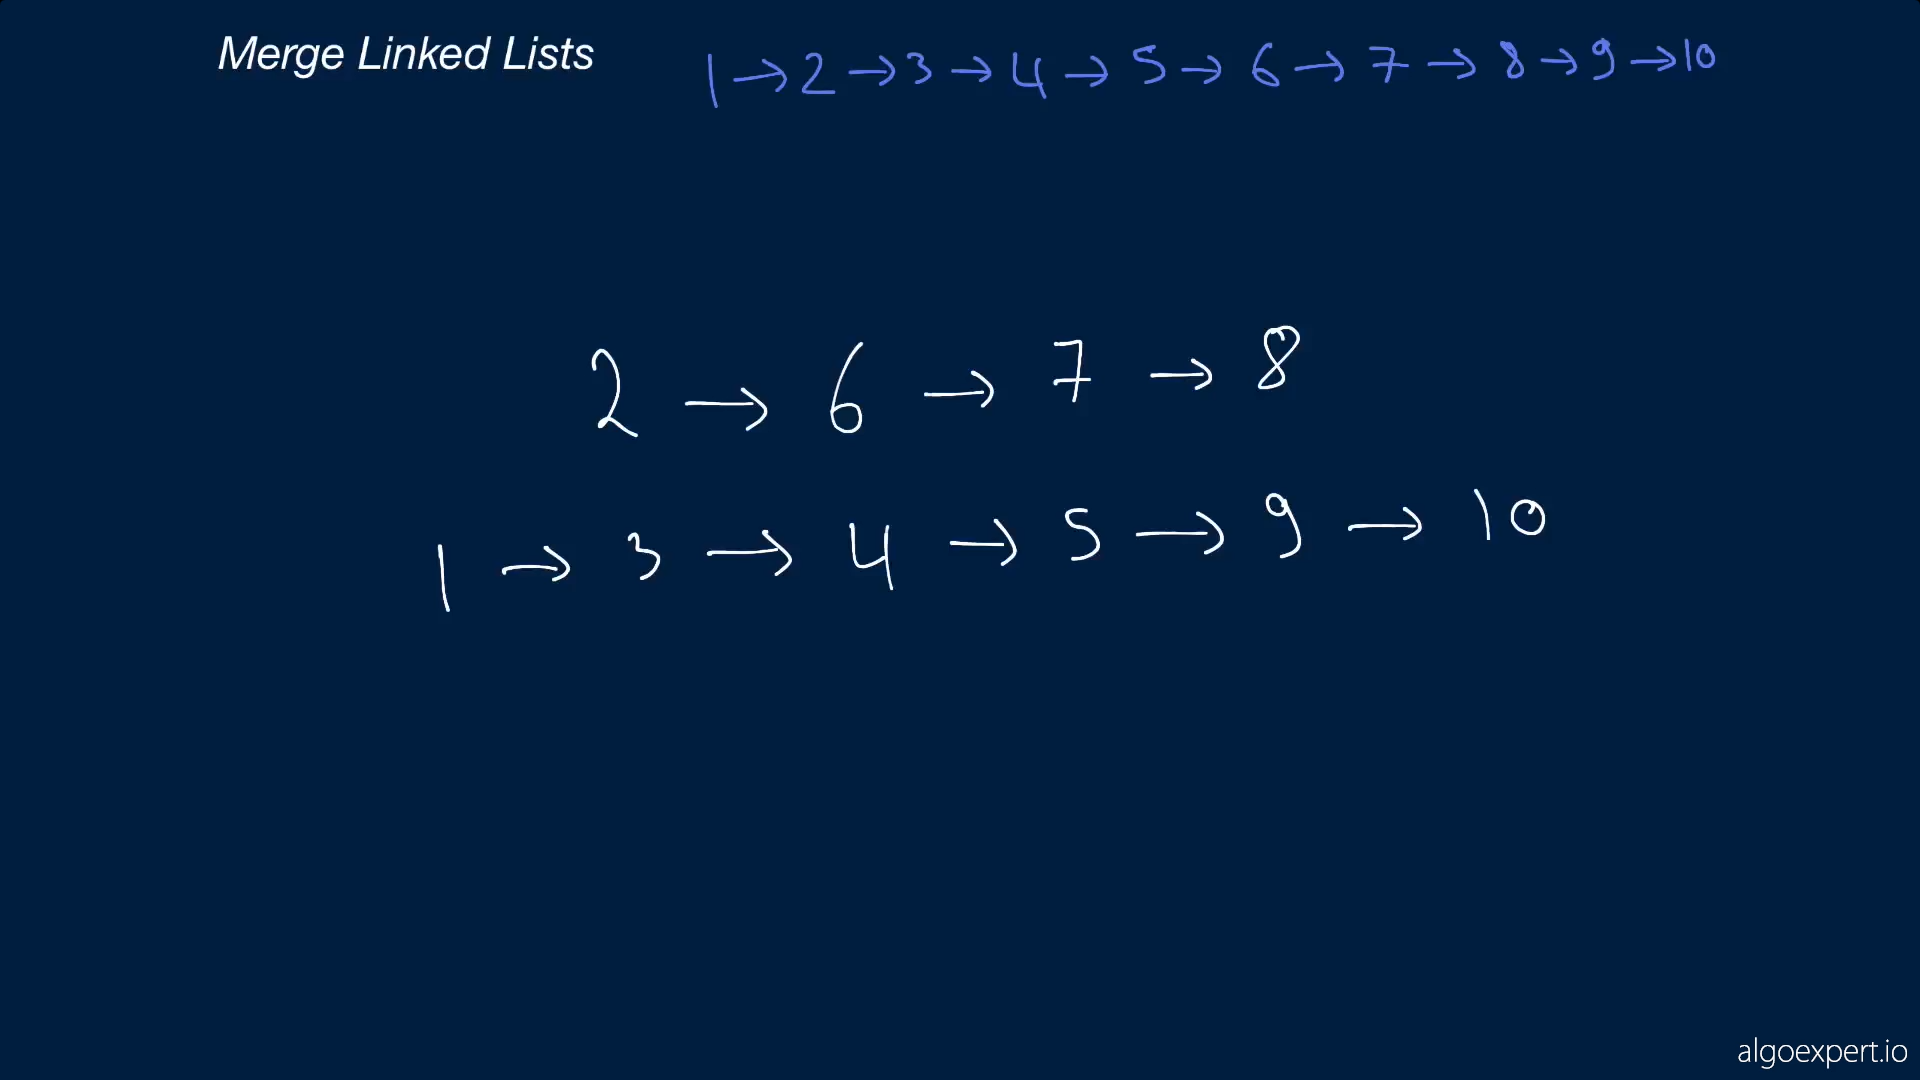 Merge Linked Lists
1 → 2 → 3 → 4 → 5 → 6 → 7 → 8 → 9 → 10
2 → 6 → 7 → 8
1 → 3 → 4 → 5 → 9 → 10
algoexpert.io